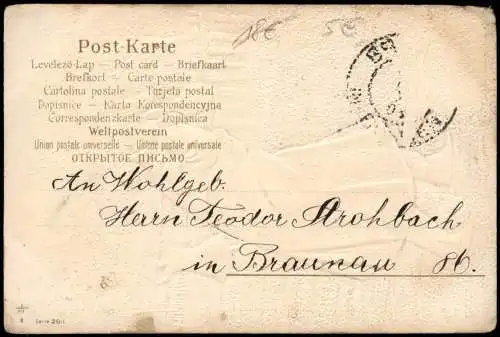 18€ 5€
Post-Karte
Levelező-Lap — Post card — Briefkaart
Brefkort — Carte postale
Cartolina postale — Tarjeta postal
Dopisnice — Karta Korespondencyjna
Correspondenzkarte — Dopisnica
Weltpostverein
Union postale universelle — Unione postale universale
ОТКРЫТОЕ ПИСЬМО
An Wohlgeb.
Herrn Teodor Strohbach
in Braunau
Serie